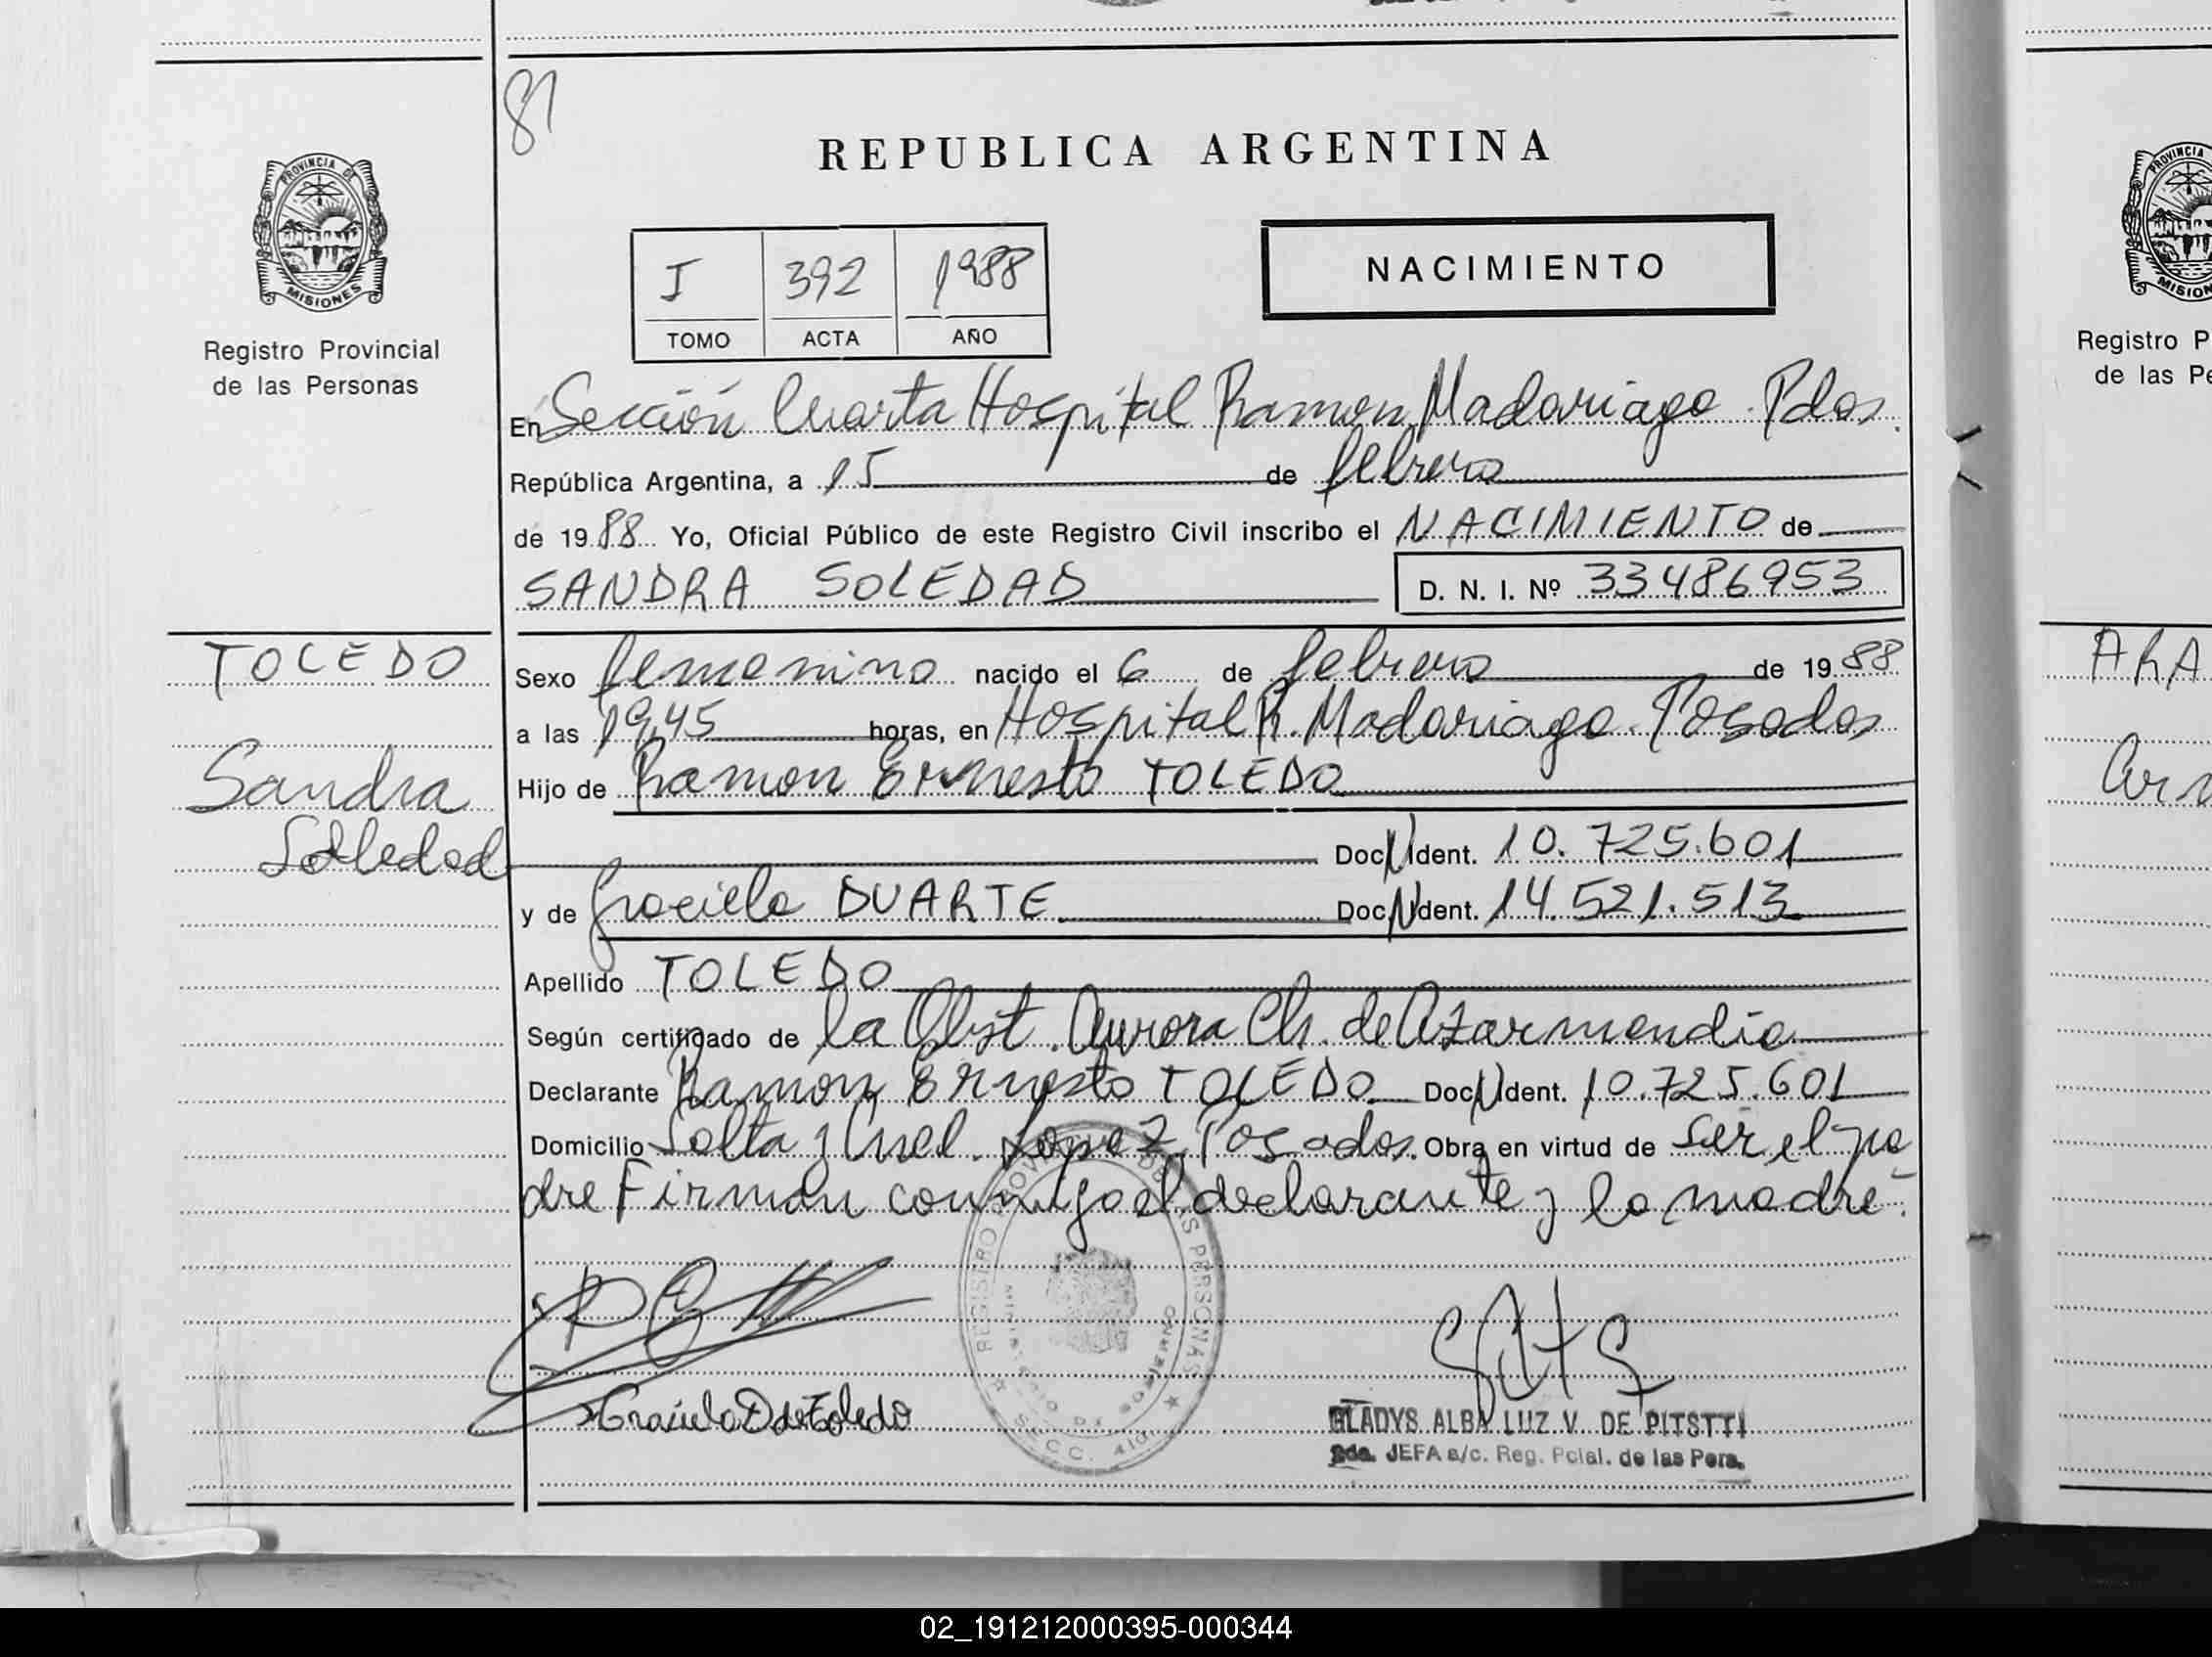 81
REPUBLICA ARGENTINA
PROVINCIA DE
MISIONES
Registro Provincial
de las Personas
I 392 1988
TOMO ACTA AÑO
NACIMIENTO
En Sección Cuarta Hospital Ramon Madariaga. Pdas.
República Argentina, a 15 de febrero
de 1988 Yo, Oficial Público de este Registro Civil inscribo el NACIMIENTO de
SANDRA SOLEDAD D. N. I. Nº 33486953
TOLEDO
Sandra
Soledad
Sexo femenino nacido el 6 de febrero de 1988
a las 19,45 horas, en Hospital R. Madariaga. Posadas
Hijo de Ramon Ernesto TOLEDO
Doc. N Ident. 10.725.601
y de Graciela DUARTE Doc. N Ident. 14.521.513
Apellido TOLEDO
Según certificado de la Obst. Aurora Ch. de Azarmendia
Declarante Ramón Ernesto TOLEDO Doc. N Ident. 10.725.601
Domicilio Salta y Cnel. Lopez, Posadas. Obra en virtud de ser el pa
dre Firman conmigo el declarante y la madre.
Graciela D de Toledo
REGISTRO PROVINCIAL DE LAS PERSONAS
MINISTERIO DE GOBIERNO
SECC. 4ta
GLADYS ALBA LUZ V. DE PITSTTI
2da. JEFA a/c. Reg. Pcial. de las Pers.
PROVINCIA
MISION
Registro P
de las Pe
ARA
02_191212000395-000344